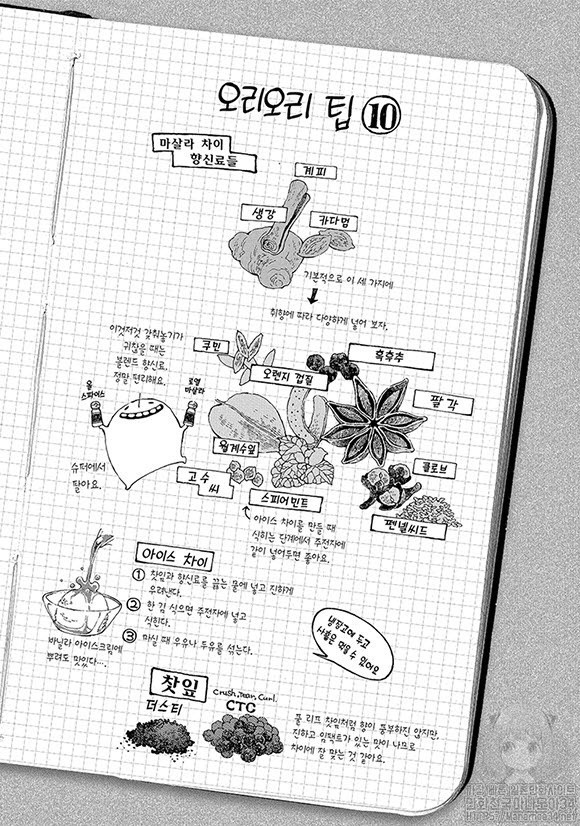 오리오리 팁 ⑩
마살라 차이
향신료들
계피
생강
카다멈
기본적으로 이 세 가지에
취향에 따라 다양하게 넣어 보자.
이것저것 갖춰놓기가
귀찮을 때는
블렌드 향신료.
정말 편리해요.
올
스파이스
로열
마살라
슈퍼에서
팔아요.
쿠민
오렌지 껍질
흑후추
팔각
월계수잎
클로브
고수
씨
스피어민트
펜넬씨드
아이스 차이를 만들 때
식히는 단계에서 주전자에
같이 넣어두면 좋아요.
아이스 차이
① 찻잎과 향신료를 끓는 물에 넣고 진하게
우려낸다.
② 한 김 식으면 주전자에 넣고
식힌다.
③ 마실 때 우유나 두유를 섞는다.
바닐라 아이스크림에
뿌려도 맛있다….
냉장고에 두고
사흘은 먹을 수 있어요
찻잎
Crush, Tear, Curl.
더스티
CTC
풀 리프 찻잎처럼 향이 풍부하진 않지만,
진하고 임팩트가 있는 맛이 나므로
차이에 잘 맞는 것 같아요.